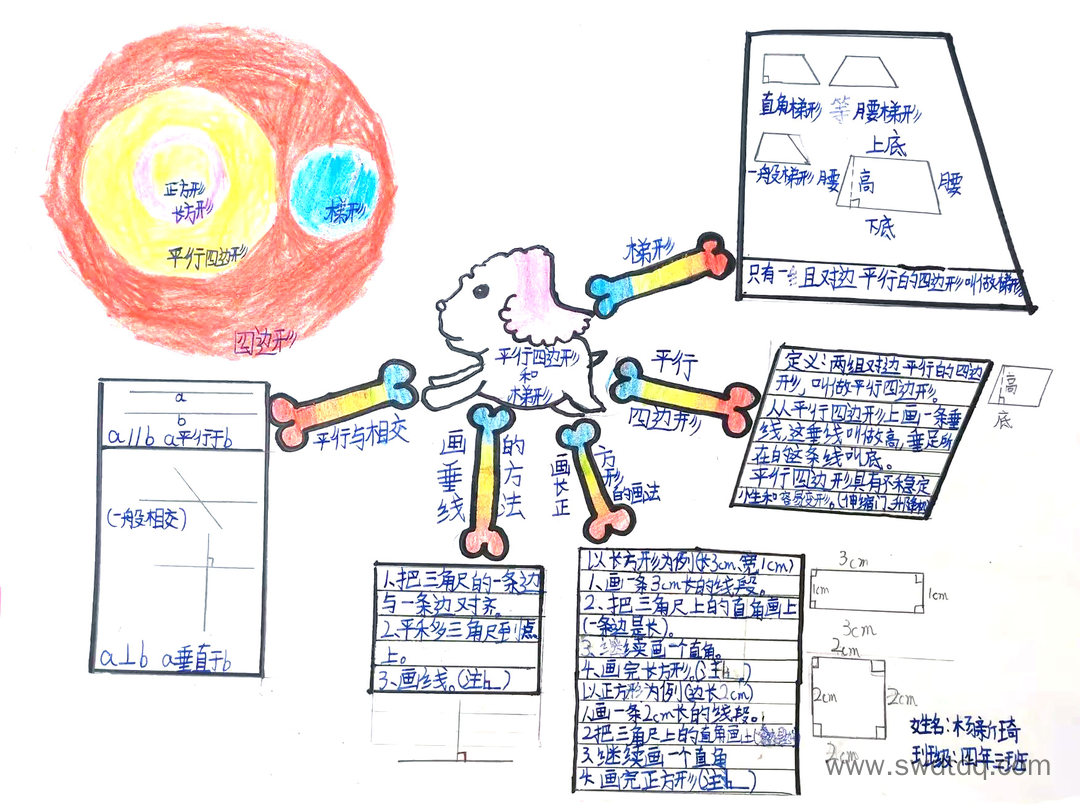 正方形
长方形
梯形
平行四边形
四边形
直角梯形 等腰梯形
上底
一般梯形 腰 高 腰
下底
只有一组对边平行的四边形叫做梯形
梯形
平行四边形
和
梯形
平行
四边形
定义:两组对边平行的四边
形,叫做平行四边形。
从平行四边形上画一条垂
线,这垂线叫做高,垂足所
在的这条线叫底。
平行四边形具有不稳定
性和容易变形。(伸缩门,升降机)
高
底
平行与相交
a
b
a∥b a平行于b
(一般相交)
a⊥b a垂直于b
画垂线的方法
1、把三角尺的一条边
与一条边对齐。
2、平移三角尺到点
上。
3、画线。(注)
画长正方形的画法
以长方形为例(长3cm、宽1cm)
1、画一条3cm长的线段。
2、把三角尺上的直角画上
(一条边是长)。
3、继续画一个直角。
4、画完长方形。(注)
以正方形为例(边长2cm)
1、画一条2cm长的线段。
2把三角尺上的直角画上
3、继续画一个直角
4、画完正方形(注)
3cm
1cm
1cm
3cm
2cm
2cm
2cm
2cm
姓名:杨新琦
班级:四年三班
www.swdtdq.com